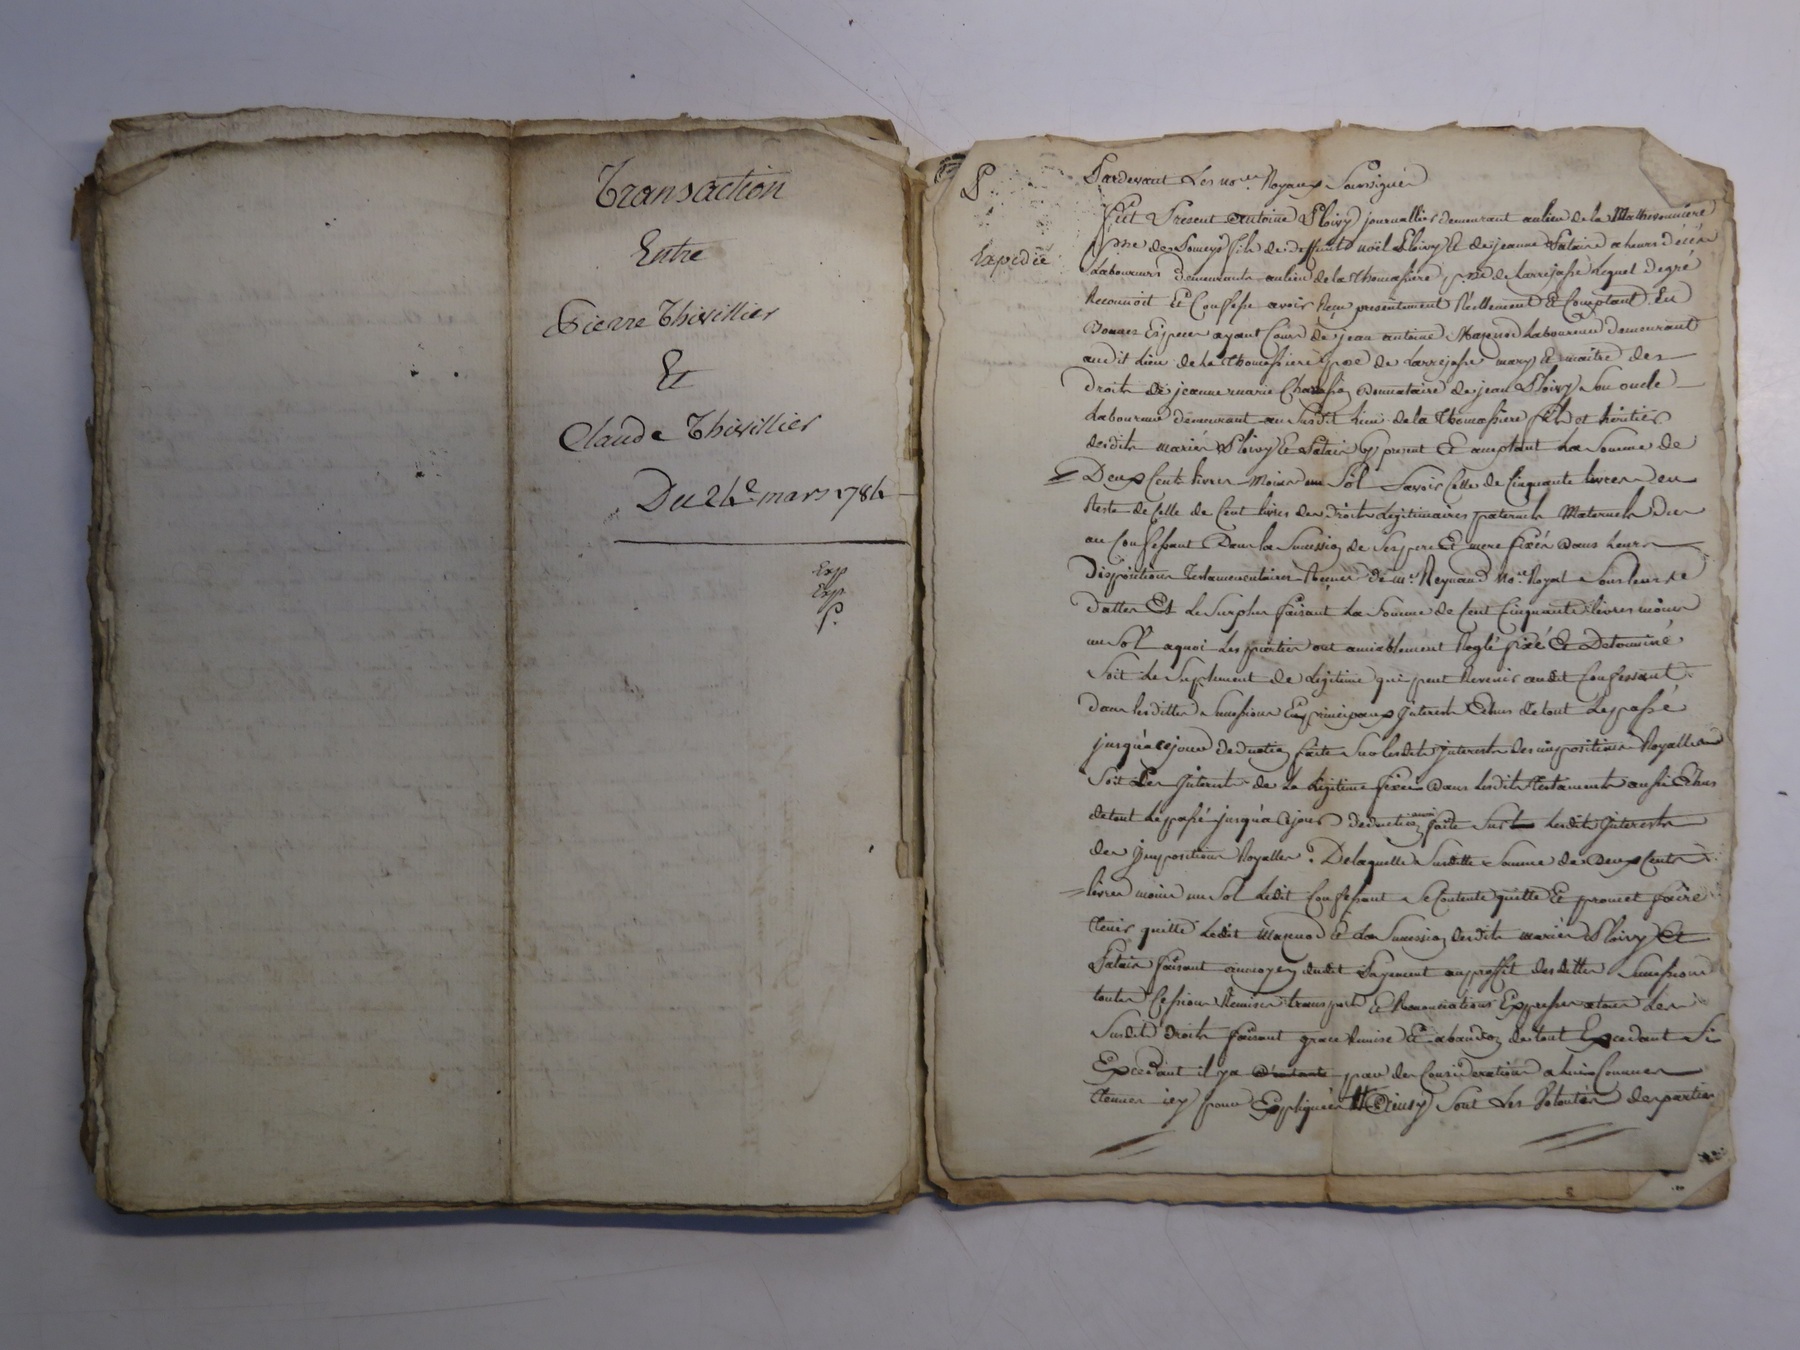 Transaction
Entre
Pierre Thivillier
Et
Claude Thivillier
Du 24e mars 1784
Exp
Exp
P.
P.
Expediée
Pardevant Les nores Royaux Soussignés
fut Present Antoine Ploivy journallier demeurant au lieu de la
psse de Someys fils de deffunt noël Ploivy Et de jeanne Salair
Laboureurs demeurants au lieu de la Thomassiere psse de Larrajasse Lequel degré
Reconnoit Et Confesse avoir Reçu presentement Réellement Et Comptant En
Bonnes Especes ayant Cours de jean antoine Masnod Laboureur demeurant
audit Lieu de la Thomassiere psse de Larrejasse mary Et maitre des
droits de jeanne marie donnataire de jean Ploivy Son oncle
Laboureur demeurant au Susdit Lieu de la Thomassiere fils et héritier
desdits mariés Ploivy Et Salair Cy present Et acceptant La Somme de
Deux Cents livres Moins un Sol Savoir Celle de Cinquante livres en
Reste de Celle de Cent livres des droits Légitimaires paternels Maternels dus
au Confessant Dans la Succession de Ses pere Et mere fixés dans leurs
dispositions Testamentaires Reçues de me Reynaud nore Royal Sous leurs
dattes Et Le Surplus faisant La Somme de Cent Cinquante livres moins
un Sol aquoi Les parties ont amiablement Reglé fixé Et Determiné
Soit Le Suplement de Légitime qui peut Revenir audit Confessant
dans lesdittes Successions En principaux Interests Echus de tout Le passé
jusqu'a cejour deduction faite Sur lesdits Interests des impositions Royalles
Soit Les Interests de La Légitime fixée Dans lesdits testaments aussi Echus
detout Le passé jusqu'a Cejour deduction aussi faite Sur Lesdits Interests
des Impositions Royalles. De laquelle Susditte Somme de Deux Cents
livres moins un Sol Ledit Confessant Se Contente quitte Et promet faire
tenir quitte Ledit Masnod Et La Succession desdits mariés Ploivy Et
Salair faisant au moyen dudit Payement au proffit desdittes Successions
toutes Cessions Remises transports Et Renonciations Expresses
Susdits droits faisant grace Remise Et abandon de tout Excedant Si
Excedant il ya par des Considerations a lui Connues
tenues icy pour Expliquées Ainsy Sont Les Volontés des parties